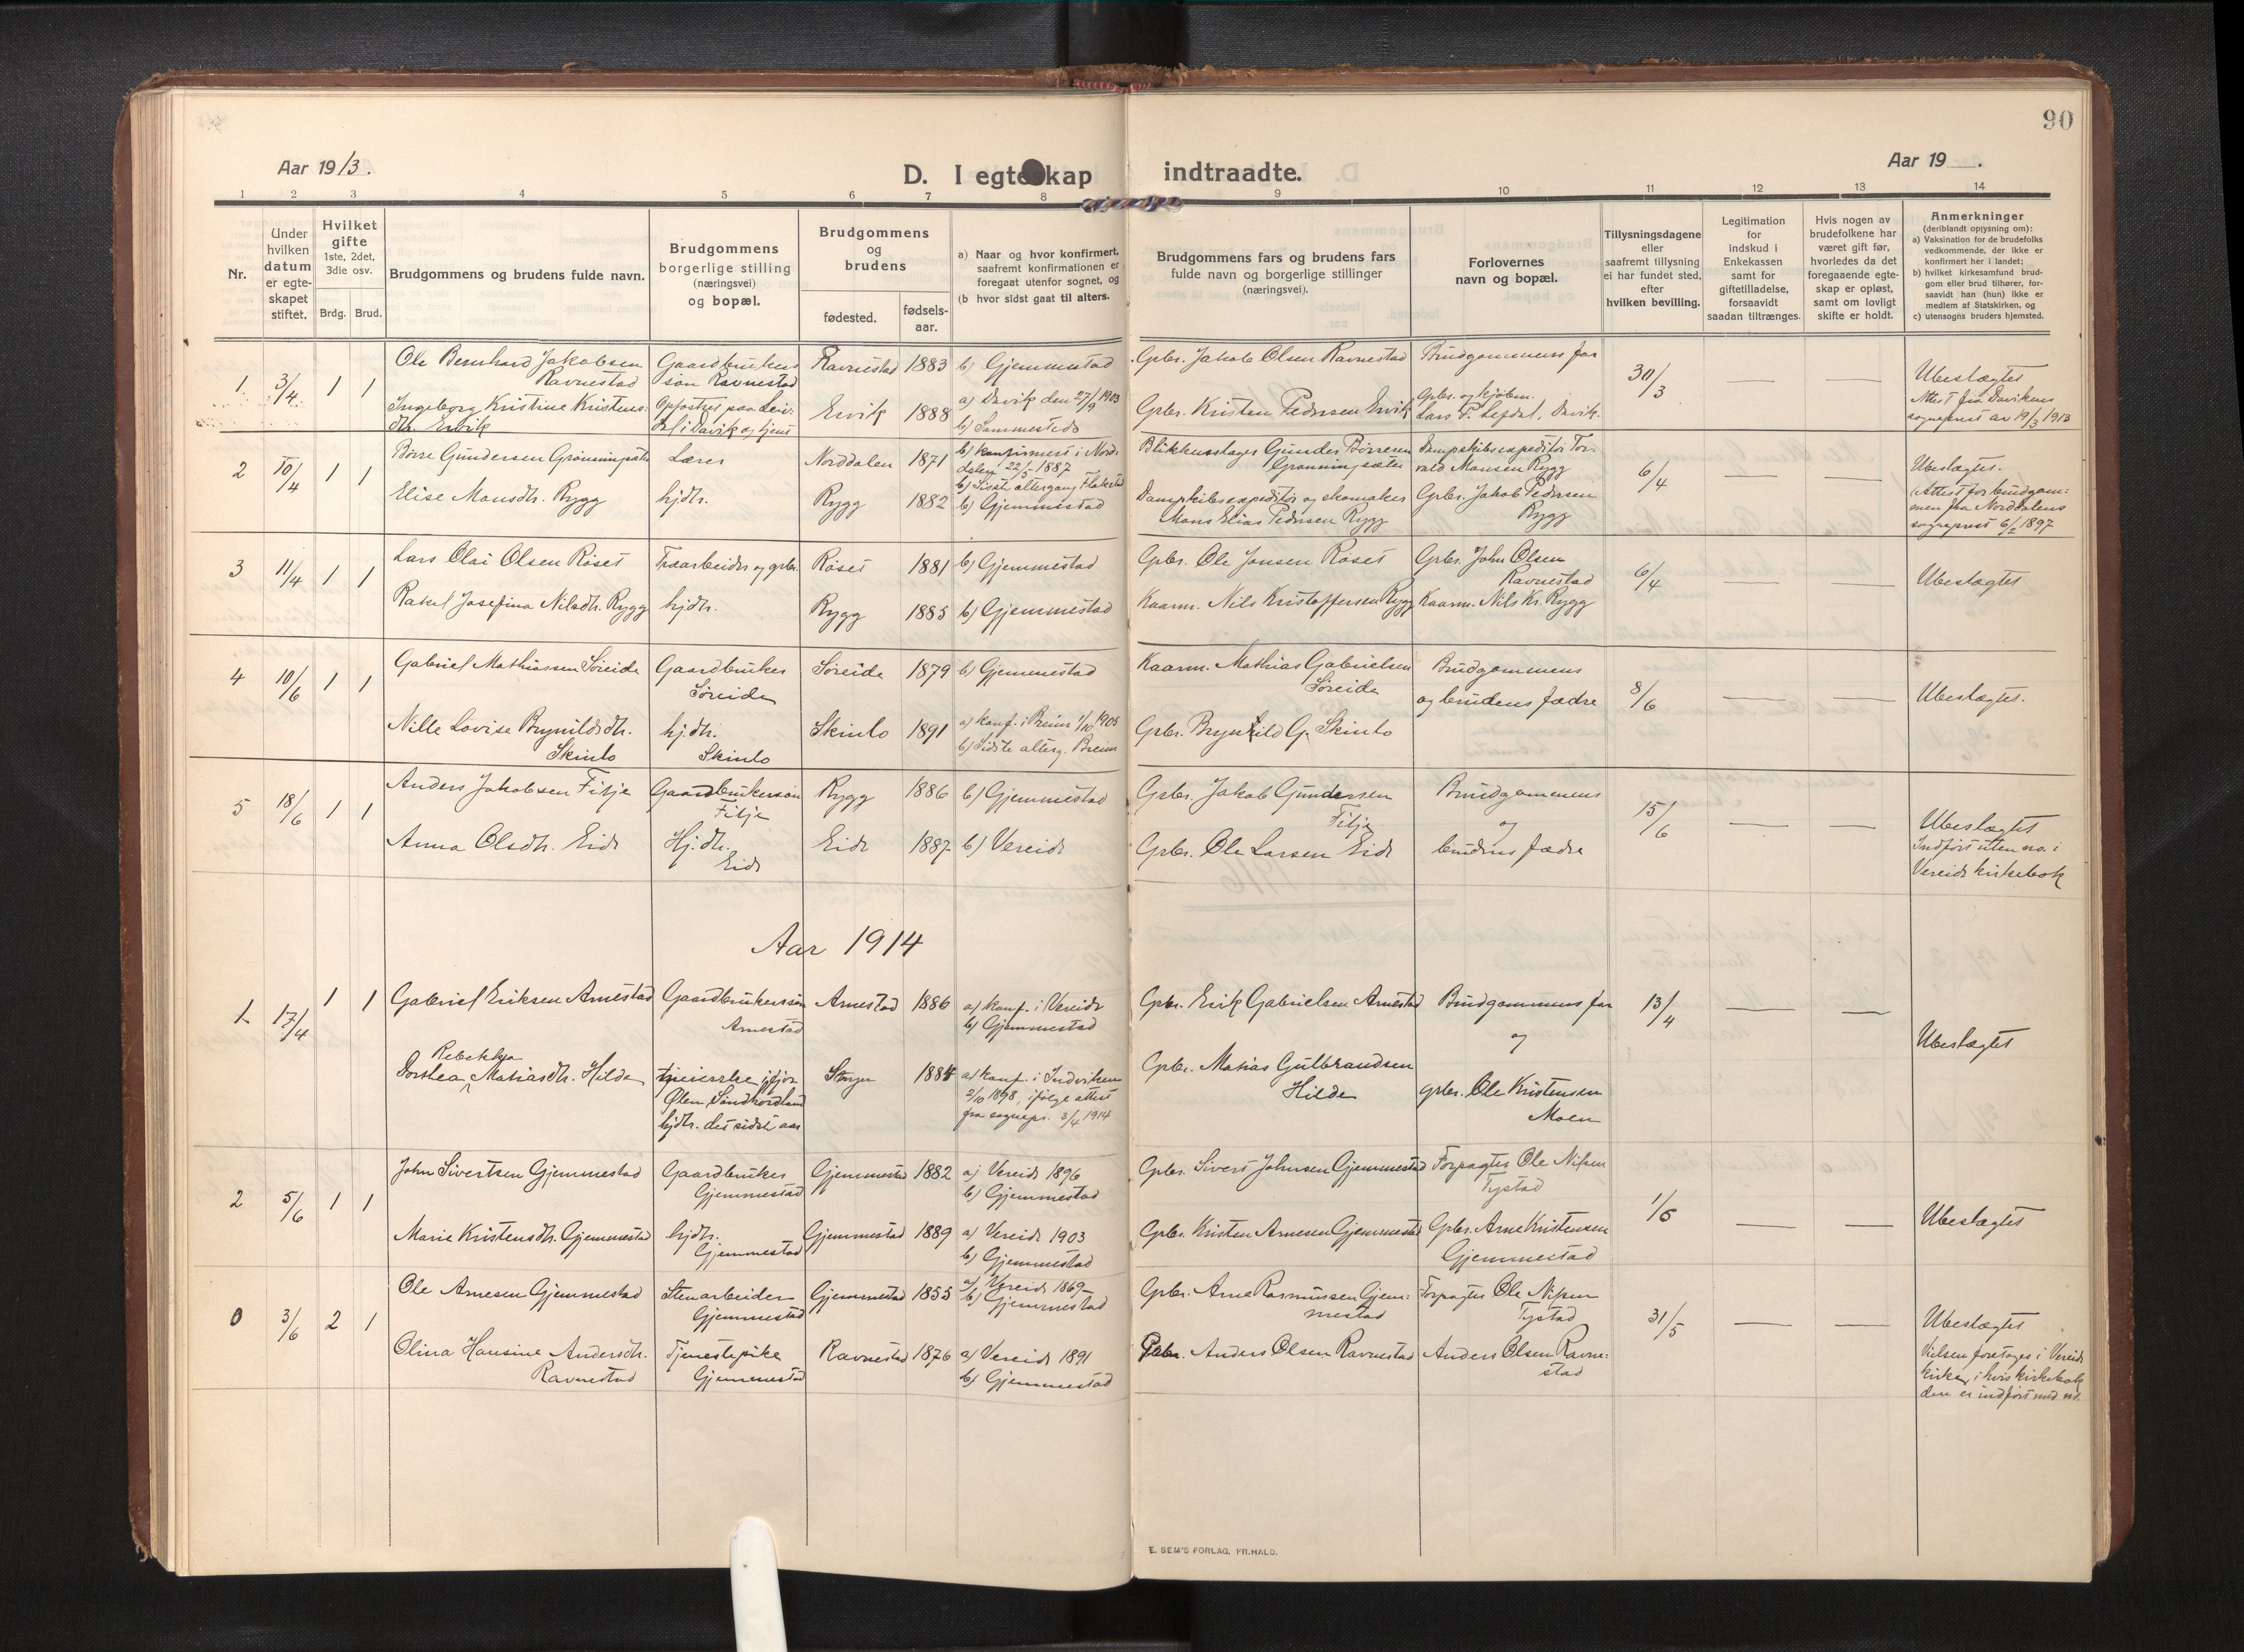 90
Aar 1913.
D. I egteskap indtraadte.
Aar 19 .
1 2 3 4 5 6 7 8 9 10 11 12 13 14
Nr.
Under
hvilken
datum
er egte-
skapet
stiftet.
Hvilket
gifte
1ste, 2det,
3die osv.
Brdg. Brud.
Brudgommens og brudens fulde navn.
Brudgommens
borgerlige stilling
(næringsvei)
og bopæl.
Brudgommens
og
brudens
fødested.
fødsels-
aar.
a) Naar og hvor konfirmert,
saafremt konfirmationen er
foregaat utenfor sognet, og
(b hvor sidst gaat til alters.
Brudgommens fars og brudens fars
fulde navn og borgerlige stillinger
(næringsvei).
Forlovernes
navn og bopæl.
Tillysningsdagene
eller
saafremt tillysning
ei har fundet sted,
efter
hvilken bevilling.
Legitimation
for
indskud i
Enkekassen
samt for
giftetilladelse,
forsaavidt
saadan tiltrænges.
Hvis nogen av
brudefolkene har
været gift før,
hvorledes da det
foregaaende egte-
skap er opløst,
samt om lovligt
skifte er holdt.
Anmerkninger
(deriblandt opjysning om):
a) Vaksination for de brudefolks
vedkommende, der ikke er
konfirmert her i landet;
b) hvilket kirkesamfund brud-
gom eller brud tilhører, for-
saavidt han (hun) ikke er
medlem af Statskirken, og
c) utensogns bruders hjemsted.
1 3/4 1 1
Ole Bernhard Jakobsen
Ravnestad
Gaardbrukers
søn Ravnestad
Ravnestad 1883 b) Gjemmestad
Gpbr. Jakob Olsen Ravnestad
Brudgommens far
30/3
Ubeslægtet
Attest fra Davikens
sogneprest av 19/3 1913
Ingeborg Kristine Kristens:
dtr. Ervik
Opfostret paa
i Davik og tjent
Ervik 1888 a) Davik den 27/9 1903
b) Sammesteds
Gpbr. Kristen Pedersen Ervik
Gpbr. og kjøbm.
Lars P. Lefdal, Davik.
2 10/4 1 1
Børre Gundersen Grønningsæter
Lærer
Norddalen 1871 b) Konfirmert i Nord:
dalen 22/5 1887
b) Sidste altergang Flakstad
Blikkenslager Gunder Børresen
Grønningsæter
Dampskibsexpeditør Tor:
vald Monsen Rygg
6/4
Ubeslægtet.
(Attest for brudgom:
men fra Norddalens
sogneprest 6/2 1897
Elise Monsdtr. Rygg
hjdtr.
Rygg 1882 b) Gjemmestad
Dampskibsexpeditør og skomaker
Mons Elias Pedersen Rygg
Gpbr. Jakob Pedersen
Rygg
3 11/4 1 1
Lars Olai Olsen Røset
Træarbeider og gpbr.
Røset 1881 b) Gjemmestad
Gpbr. Ole Jonsen Røset
Gpbr. John Olsen
Ravnestad
6/4
Ubeslægtet
Rakel Josefina Nilsdtr. Rygg
hjdtr.
Rygg 1885 b) Gjemmestad
Kaarm. Nils Kristoffersen Rygg
Kaarm. Nils Kr. Rygg
4 10/6 1 1
Gabriel Mathiassen Søreide
Gaardbruker
Søreide
Søreide 1879 b) Gjemmestad
Kaarm. Mathias Gabrielsen
Søreide
Brudgommens
og brudens fædre
8/6
Ubeslægtet.
Nille Lovise Brynildsdtr.
Skinlo
hjdtr.
Skinlo
Skinlo 1891 a) Konf. i Breim 1/10 1905
b) Sidste alterg. Breim
Gpbr. Brynhild G. Skinlo
5 18/6 1 1
Anders Jakobsen Fitje
Gaardbrukersøn
Fitje
Rygg 1886 b) Gjemmestad
Gpbr. Jakob Gundersen
Fitje
Brudgommens
og
brudens fædre
15/6
Ubeslægtet
Indført uten no. i
Vereids kirkebok
Anna Olsdtr. Eide
Hj.dtr.
Eide
Eide 1887 b) Vereide
Gpbr. Ole Larsen Eide
Aar 1914
1 17/4 1 1
Gabriel Eriksen Arnestad
Gaardbrukersøn
Arnestad
Arnestad 1886 a) konf. i Vereide
b) Gjemmestad
Gpbr. Erik Gabrielsen Arnestad
Brudgommens far
og
13/4
Ubeslægtet
Rebekka
Dorthea Matiasdtr. Hilde
meierske ifjor
Ølen, Søndhordland
hjdtr. det sidste aar
Stryn 1884 a) konf. i Indviken
2/10 1898, ifølge attest
fra sognepr. 3/4 1914
Gpbr. Matias Gulbrandsen
Hilde
gpbr. Ole Kristensen
Moen
2 5/6 1 1
John Sivertsen Gjemmestad
Gaardbruker
Gjemmestad
Gjemmestad 1882 a) Vereide 1896
b) Gjemmestad
Gpbr. Sivert Johnsen Gjemmestad
Forpagter Ole Nilsen
Tystad
1/6
Ubeslægtet
Marie Kristensdtr. Gjemmestad
hjdtr.
Gjemmestad
Gjemmestad 1889 a) Vereide 1903
b) Gjemmestad
Gpbr. Kristen Arnesen Gjemmestad
Gpbr. Arne Kristensen
Gjemmestad
0 3/6 2 1
Ole Arnesen Gjemmestad
Stenarbeider
Gjemmestad
Gjemmestad 1855 a) Vereide 1869
b) Gjemmestad
Gpbr. Arne Rasmussen Gjem:
mestad
Forpagter Ole Nilsen
Tystad
31/5
Ubeslægtet
Vielsen foretages i Vereide
kirke, i hvis kirkebok
den er indført med no.
Olina Hansine Andersdtr.
Ravnestad
Tjenestepike
Gjemmestad
Ravnestad 1876 a) Vereide 1891
b) Gjemmestad
Gpbr. Anders Olsen Ravnestad
Anders Olsen Ravne:
stad
E. SEM'S FORLAG, FR.HALD.